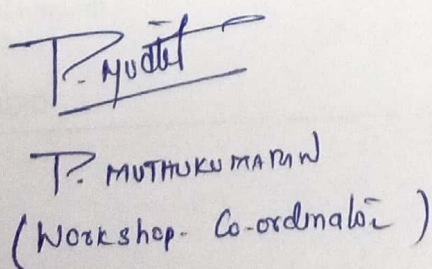 P. MUTHUKUMARAN
(Workshop- Co-ordinator)